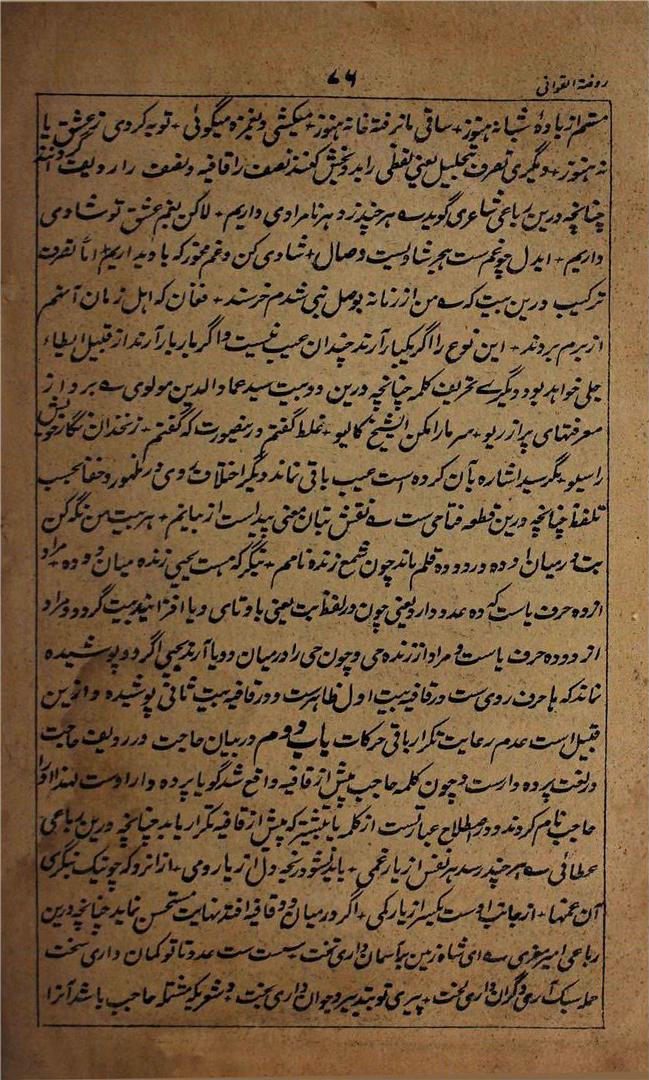 روضة القوافی
۷۶
مستم از بادهٔ شبانه هنوز + ساقی ما نرفته خانه هنوز + میکشی و بغمزه میگوئی + توبه کردی ز عشق یا
نه هنوز + و دیگری تصرف تحلیل یعنی لفظی را بدو بخش کنند نصف را قافیه و نصف را ردیف گردانند
چنانچه درین رباعی شاعری گوید ے هر چند ز دهر نامرادی داریم + لاکن بغم عشق تو شادی
داریم + ایدل چو غم ست هجر شادیست وصال + شادی کن و غم مخور که با دیداریم + اما تصرف
ترکیب درین بیت که ے من از زمانه بوصل شدم خرسند + فغان که اهل زمان آنهم
از برم بردند + این نوع را اگر یکبار آرند چندان عیب نیست و اگر بار بار آرند از قبیل ایطاء
جلی خواهد بود دیگرے تحریف کلمه چنانچه درین دو بیت سید عماد الدین مولوی ے برو از
معرفتهای پر از ریو + سر ما را مکن ای شیخ کالیو + غلط گفتم درینصورت که گفتم + زنخدان نگار خویش
را سیو + مگر سید اشاره بآن کرده است عیب باقی نماند دیگر اختلاف روی در ظهور و خفا بحسب
تلفظ چنانچه درین قطعه فتاحی ست ے نقش بتان معنی پیداست از بیانم + هر بیت من نگه کن
بت در میان ده و دو ده قلم ماند چون شمع زنده نامم + بنگر که هست یحیی زنده میان دو ده + مراد
از ده حرف یاست که ده عدد دارد یعنی چون در لفظ بت یعنی با و تای و یا افزائید بیت گردد و مراد
از دو ده حرف یاست و مراد از زنده حی و چون حی را درمیان دو یا آرند یحیی اگر دو پوشیده
نماند که ها حرف روی ست در قافیه بیت اول ظاهرست و در قافیه بیت ثانی پوشیده و ازین
قبیل است عدم رعایت تکرار باقی حرکات باب دوم در بیان حاجب و ردیف حاجب
در لغت پرده دارست و چون کلمه حاجب پیش از قافیه واقع شد گویا پرده دار اوست لهذا او را
حاجب نام کردند و در اصطلاح عبارتست از کلمه یا بیشتر که پیش از قافیه تکرار یابد چنانچه درین رباعی
عطائی ے هر چند رسد هر نفس از یار غمی + باید نشود رنجه دل از یار دمی + از انرو که چو نیک بنگری
آن غمها + از جانب اوست یکسر از یار کمی + اگر درمیان دو قافیه افتد نهایت مستحسن نماید چنانچه درین
رباعی امیر معزی ے ای شاه زمین بر آسمان داری تخت سست ست عدو تا تو کمان داری سخت
حمله سبک آری و گران داری لخت + پیری تو بتدبیر و جوان داری بخت + و شعریکه مشتمله حاجب باشد آنرا